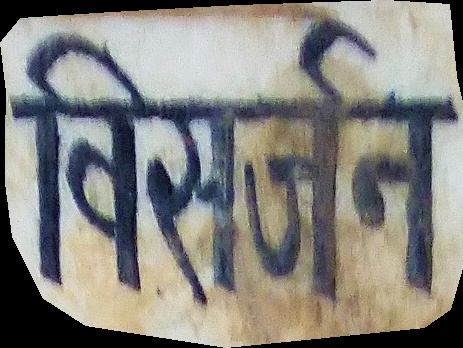 विसर्जन